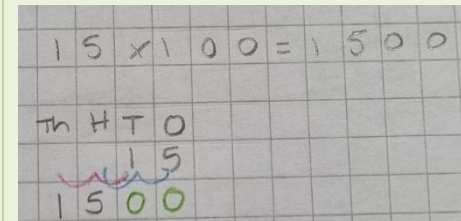 15 × 100 = 1500
Th H T O
1 5
1 5 0 0